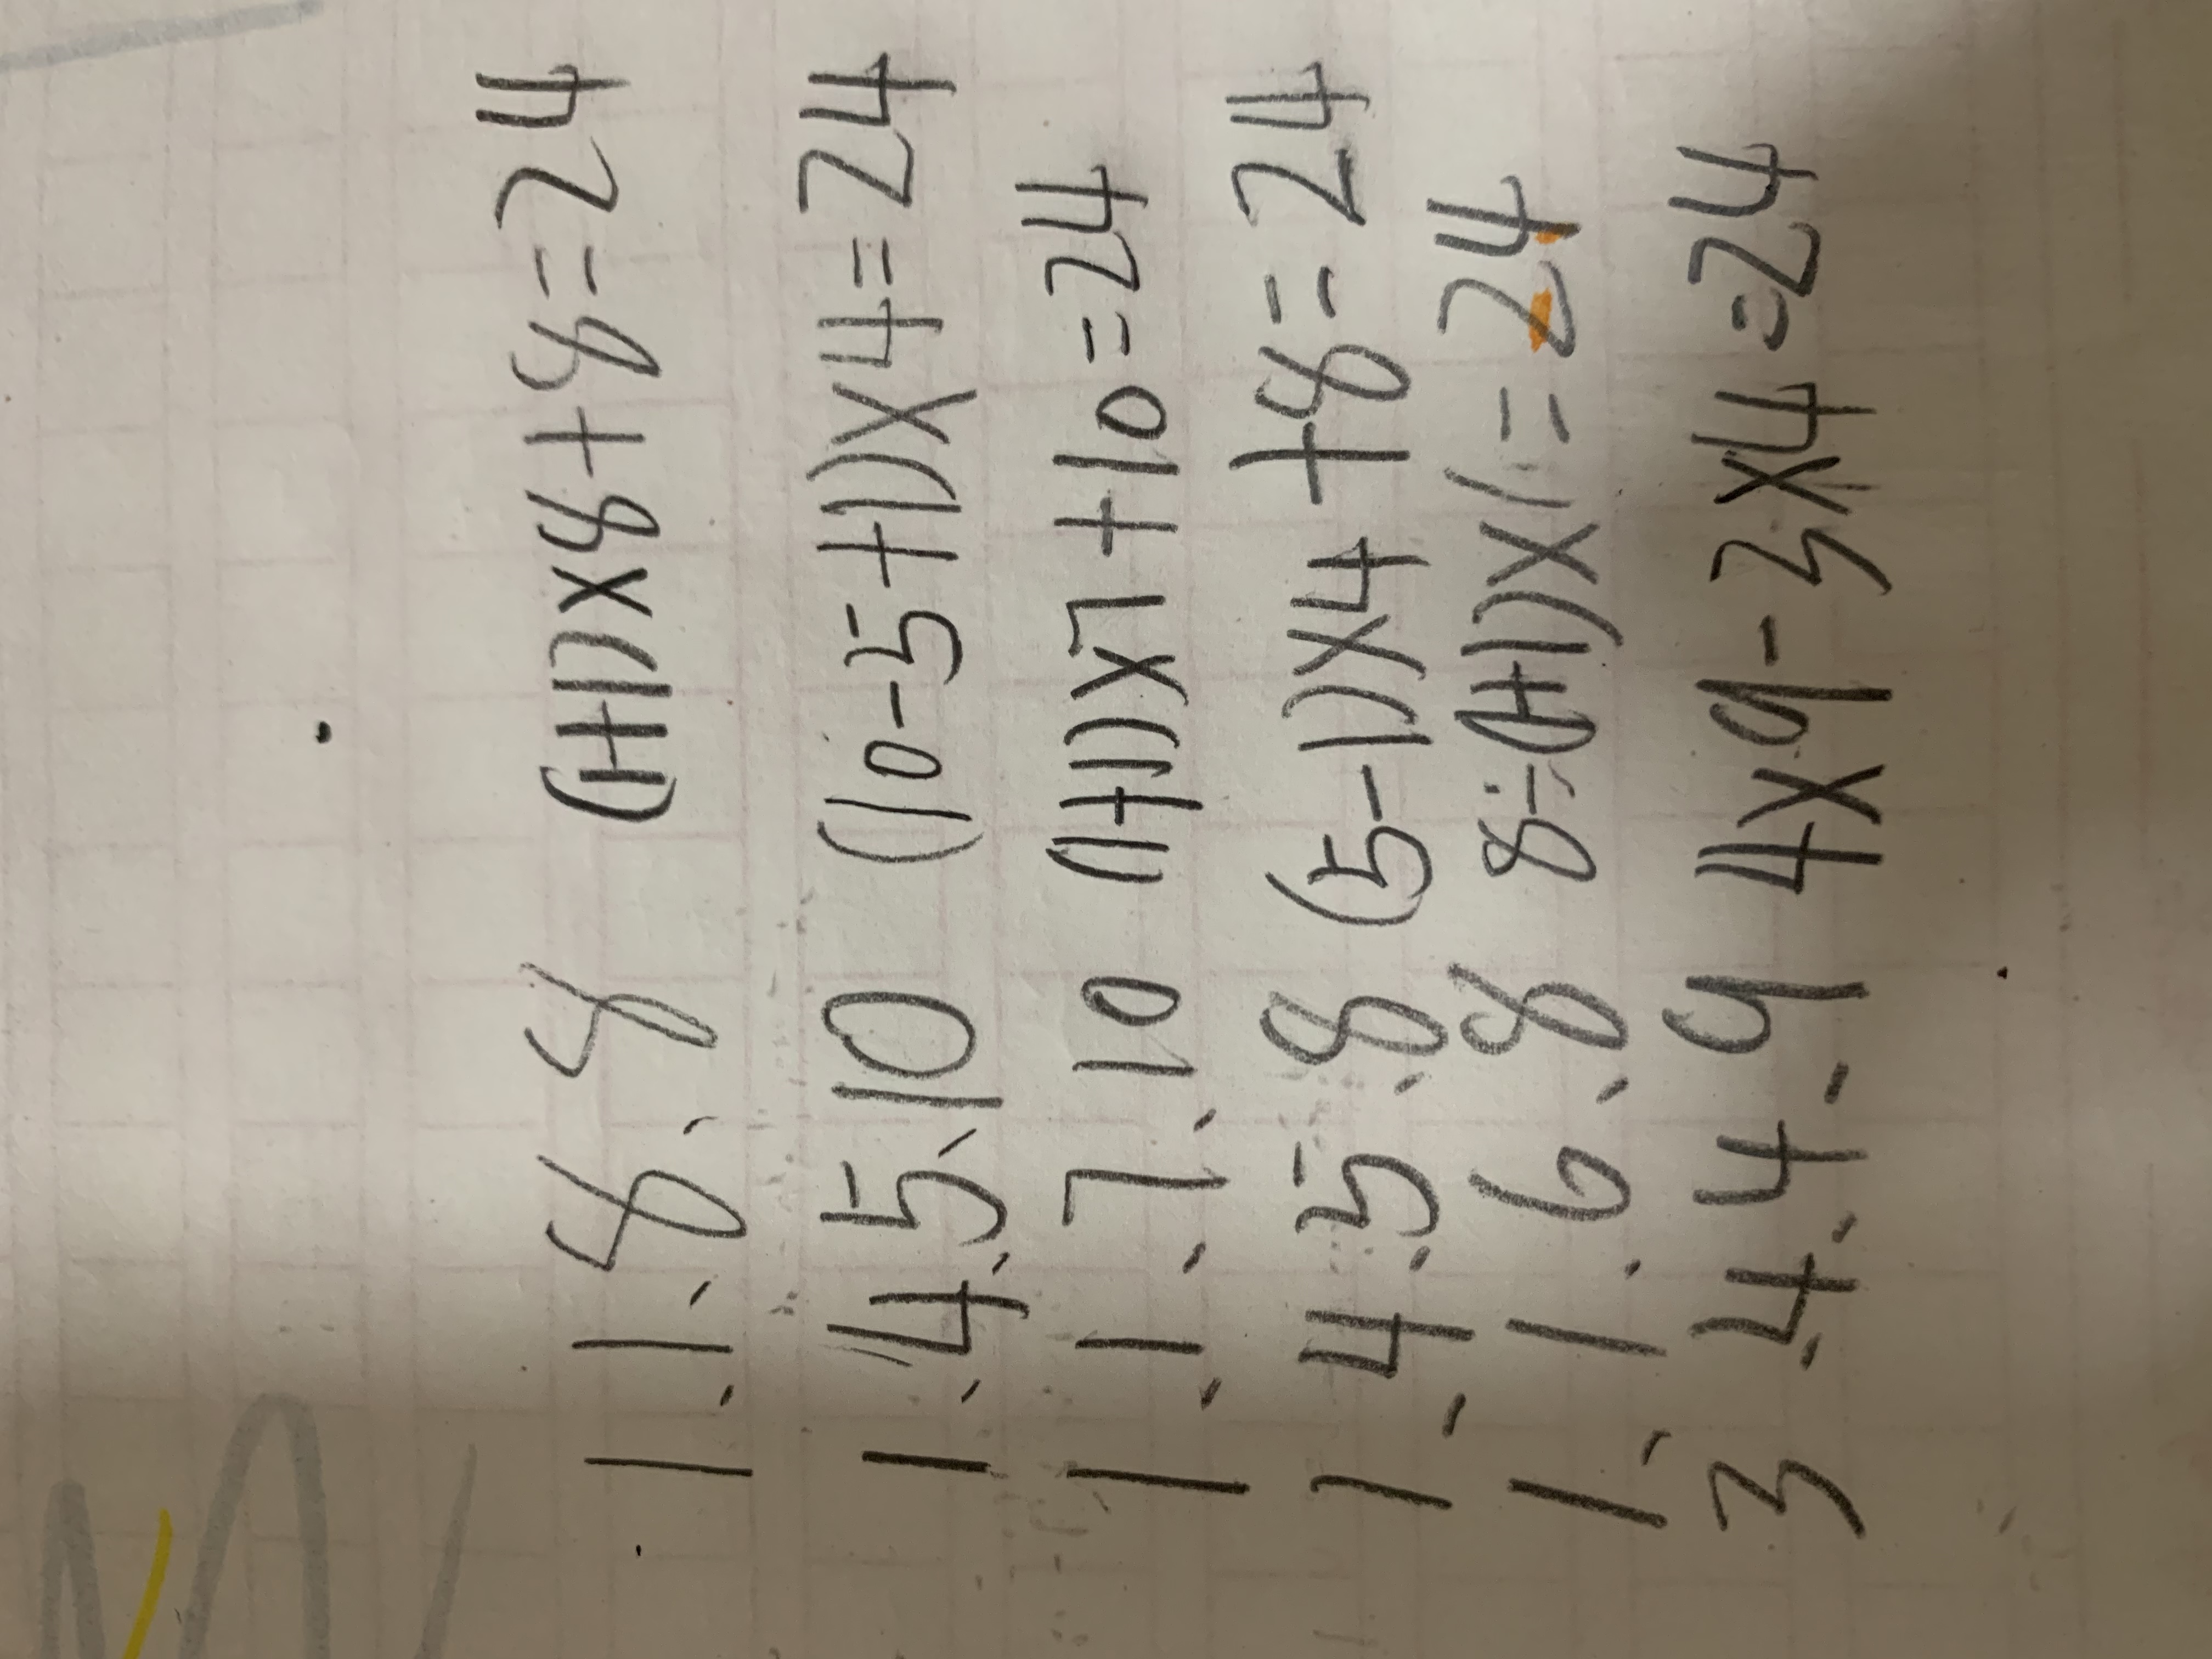 1、1、8、8 (1+1)×8+8=24
1、4、5、10 (10-5+1)×4=24
1、1、7、10 (1+1)×7+10=24
1、4、5、8 (5-1)×4+8=24
1、1、6、8 8÷(1+1)×1=24
3、4、4、9 4×9-3×4=24